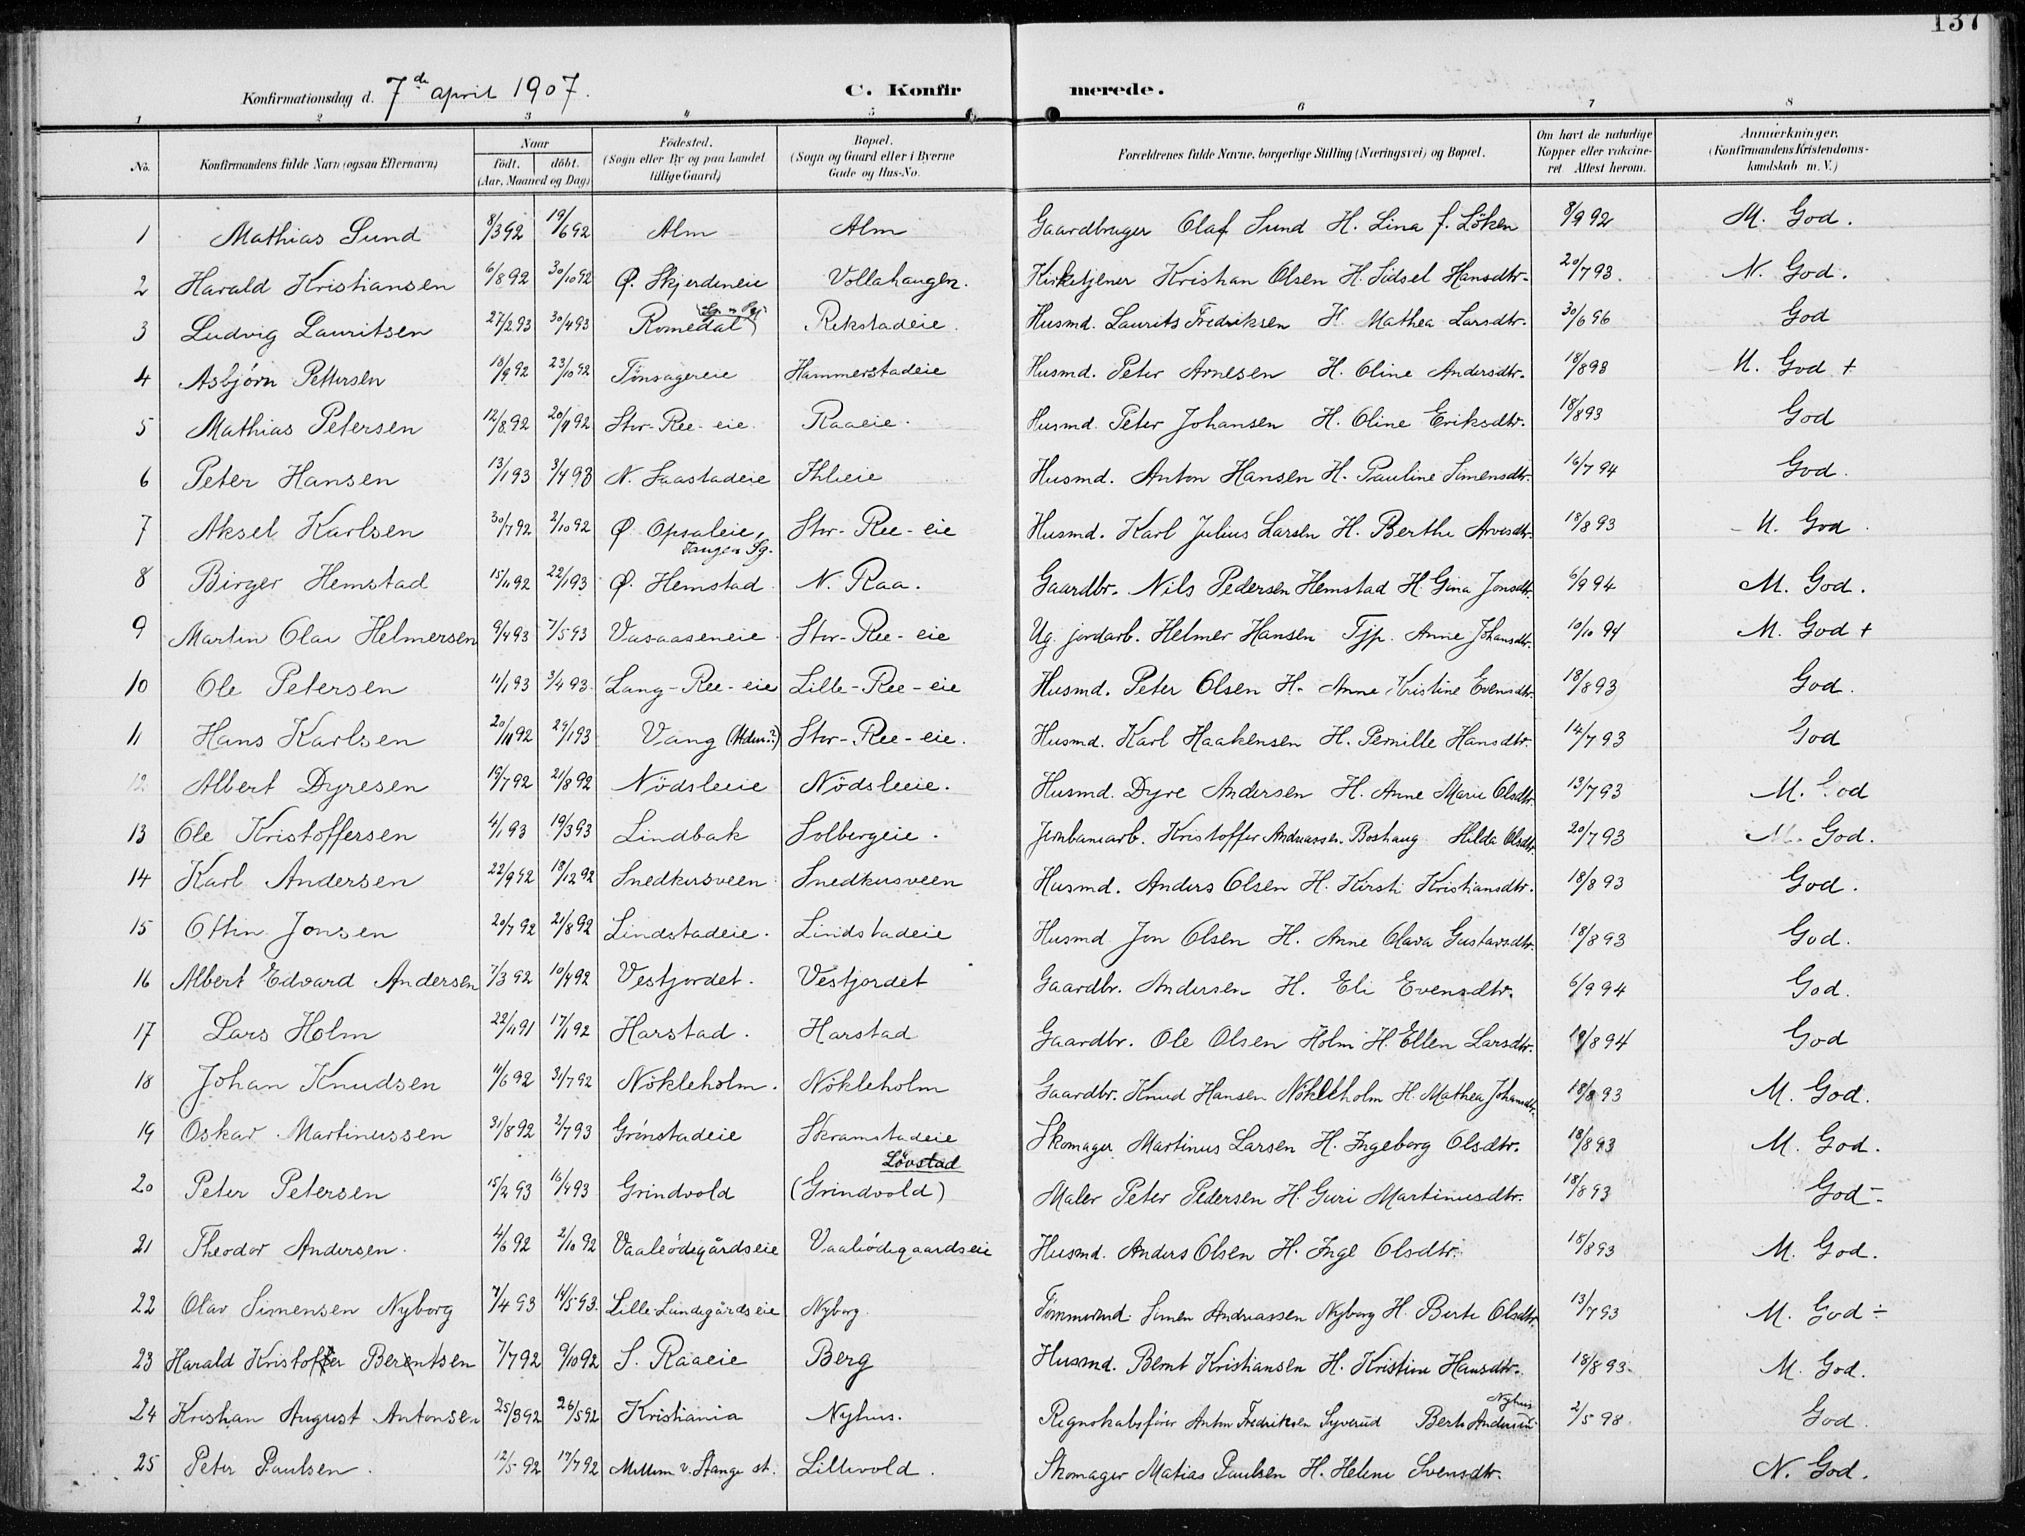 137
Konfirmationsdag d. 7de april 1907. C. Konfirmerede.
1 2 3 4 5 6 7 8
No. Konfirmandens fulde Navn (ogsaa Efternavn) Naar født. døbt. (Aar, Maaned og Dag) Fødested. (Sogn eller By og paa Landet tillige Gaard) Bopæl. (Sogn og Gaard eller i Byerne Gade og Hus-No. Forældrenes fulde Navne, borgerlige Stilling (Næringsvei) og Bopæl. Om havt de naturlige Kopper eller vakcineret Attest herom. Anmærkninger. (Konfirmandens Kristendomskundskab m. V.)
1 Mathias Sund 8/3 92 19/6 92 Alm Alm Gaardbruger Olaf Sund H. Lina f. Löken 8/9 92 M. God.
2 Harald Kristiansen 6/8 92 30/10 92 Ø. Skjerdeneie Vollahaugen. Kirketjener Kristian Olsen H. Sidsel Hansdtr. 20/7 93. N. God.
3 Ludvig Lauritsen 27/2 93 30/4 93 Romedal Rekstadeie. Husmd. Laurits Fredriksen H. Mathea Larsdtr. 30/6 96 God
4 Asbjörn Pettersen 18/9 92 23/10 92 Tönsagereie Hammerstadeie Husmd. Peter Arnesen H. Oline Andersdtr. 18/8 93 M. God +
5 Mathias Petersen 12/8 92 20/11 92 Stor-Ree-eie. Raaeie. Husmd. Peter Johansen H. Oline Eriksdtr. 18/8 93 God
6 Peter Hansen 13/1 93 3/4 93 N. Saastadeie Ihleie Husmd. Anton Hansen H. Pauline Simensdtr. 16/7 94 God.
7 Aksel Karlsen 30/7 92 2/10 92 Ø. Opsaleie, Tangen Sg. Stor-Ree-eie Husmd. Karl Julius Larsen H. Berthe Arvesdtr. 18/8 93 M. God.
8 Birger Hemstad 15/11 92 22/1 93 Ø. Hemstad N. Raa. Gaardbr. Nils Pedersen Hemstad H. Gina Jonsdtr. 6/9 94 M. God.
9 Martin Olai Helmersen 9/4 93 7/5 93 Vasaaseneie Stor-Ree-eie Ug. jordarb. Helmer Hansen Tjp. Anne Johansdtr. 10/10 94 M. God +
10 Ole Petersen 11/1 93 3/4 93 Lang-Ree-eie Lille-Ree-eie Husmd. Peter Olsen H. Anne Kristine Evensdtr. 18/8 93 God.
11 Hans Karlsen 20/11 92 29/1 93 Vang Stor-Ree-eie. Husmd. Karl Haakensen H. Pernille Hansdtr. 14/7 93 God
12 Albert Dyresen 19/7 92 21/8 92 Nödsleeie Nödsleeie. Husmd. Dyre Andersen H. Anne Marie Olsdtr. 13/7 93 M. God
13 Ole Kristoffersen 4/1 93 19/3 93 Lindbak Solbergeie. Jernbanearb. Kristoffer Andreassen Boshaug Hilda Olsdtr. 20/7 93 M. God.
14 Karl Andersen 22/9 92 18/12 92 Snedkersveen Snedkersveen Husmd. Anders Olsen H. Kirsti Kristiansdtr. 18/8 93 God.
15 Ottin Jonsen 20/7 92 21/8 92 Lindstadeie. Lindstadeie Husmd. Jon Olsen H. Anne Olava Gustavsdtr. 18/8 93 God.
16 Albert Edvard Andersen 7/3 92 10/4 92 Vestjordet. Vestjordet Gaardbr. Andersen H. Eli Evensdtr. 6/9 94 God.
17 Lars Holm 22/11 91 17/1 92 Harstad. Harstad Gaardbr. Ole Olsen Holm H. Ellen Larsdtr. 19/8 94 God
18 Johan Knudsen 11/6 92 31/7 92 Nökleholm. Nökleholm Gaardbr. Knud Hansen Nökleholm H. Mathea Johansdtr. 18/8 93 M. God.
19 Oskar Martinussen 31/8 92 2/7 93 Grönstadeie Skramstadeie Skomager Martinus Larsen H. Ingeborg Olsdtr. 18/8 93 M. God.
Lövstad
20 Peter Petersen 15/2 93 16/4 93 Grindvold (Grindvold) Maler Peter Pedersen H. Guri Martinusdtr. 18/8 93 God-
21 Theodor Andersen. 4/6 92 2/10 92 Vaaleödegårdseie Vaaleödegaardseie Husmd. Anders Olsen H. Inge Olsdtr. 18/8 93 M. God.
22 Olav Simensen Nyborg 7/4 93 14/5 93. Lille Lundegårdseie Nyborg. Tömmermd. Simen Andreassen Nyborg H. Berte Olsdtr. 13/7 93 M. God ÷
23 Harald Kristoffer Berentsen 7/7 92 9/10 92 S. Raaeie Berg Husmd. Bernt Kristiansen H. Kristine Hansdtr. 18/8 93. M. God.
Nyhus
24 Kristian August Antonsen 25/3 92 26/5 92 Kristiania Nyhus. Regnskabsförer Anton Fredriksen Syverud Berte Andersen 2/5 98. God.
25 Peter Paulsen. 12/5 92 17/7 92 Mellem v. Stange st. Lillevold. Skomager Matias Paulsen H. Helene Svensdtr. N. God.